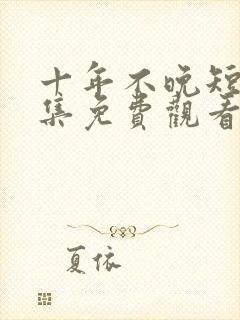 十年不晚短
集免費觀看
夏依